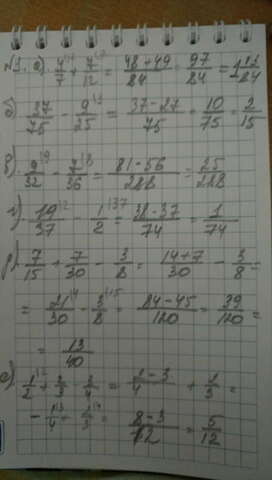 а) 4/7 + 7/12 = 48+49/84 = 97/84 = 1 13/84
б) 37/75 - 9/25 = 37-27/75 = 10/75 = 2/15
в) 9/32 - 7/36 = 81-56/288 = 25/288
г) 19/37 - 1/2 = 38-37/74 = 1/74
д) 7/15 + 7/30 - 3/8 = 14+7/30 - 3/8 =
= 21/30 - 3/8 = 84-45/120 = 39/120 =
= 13/40
е) 1/2 + 2/3 - 3/4 = 2-3/4 + 2/3 =
- 1/4 + 2/3 = 8-3/12 = 5/12